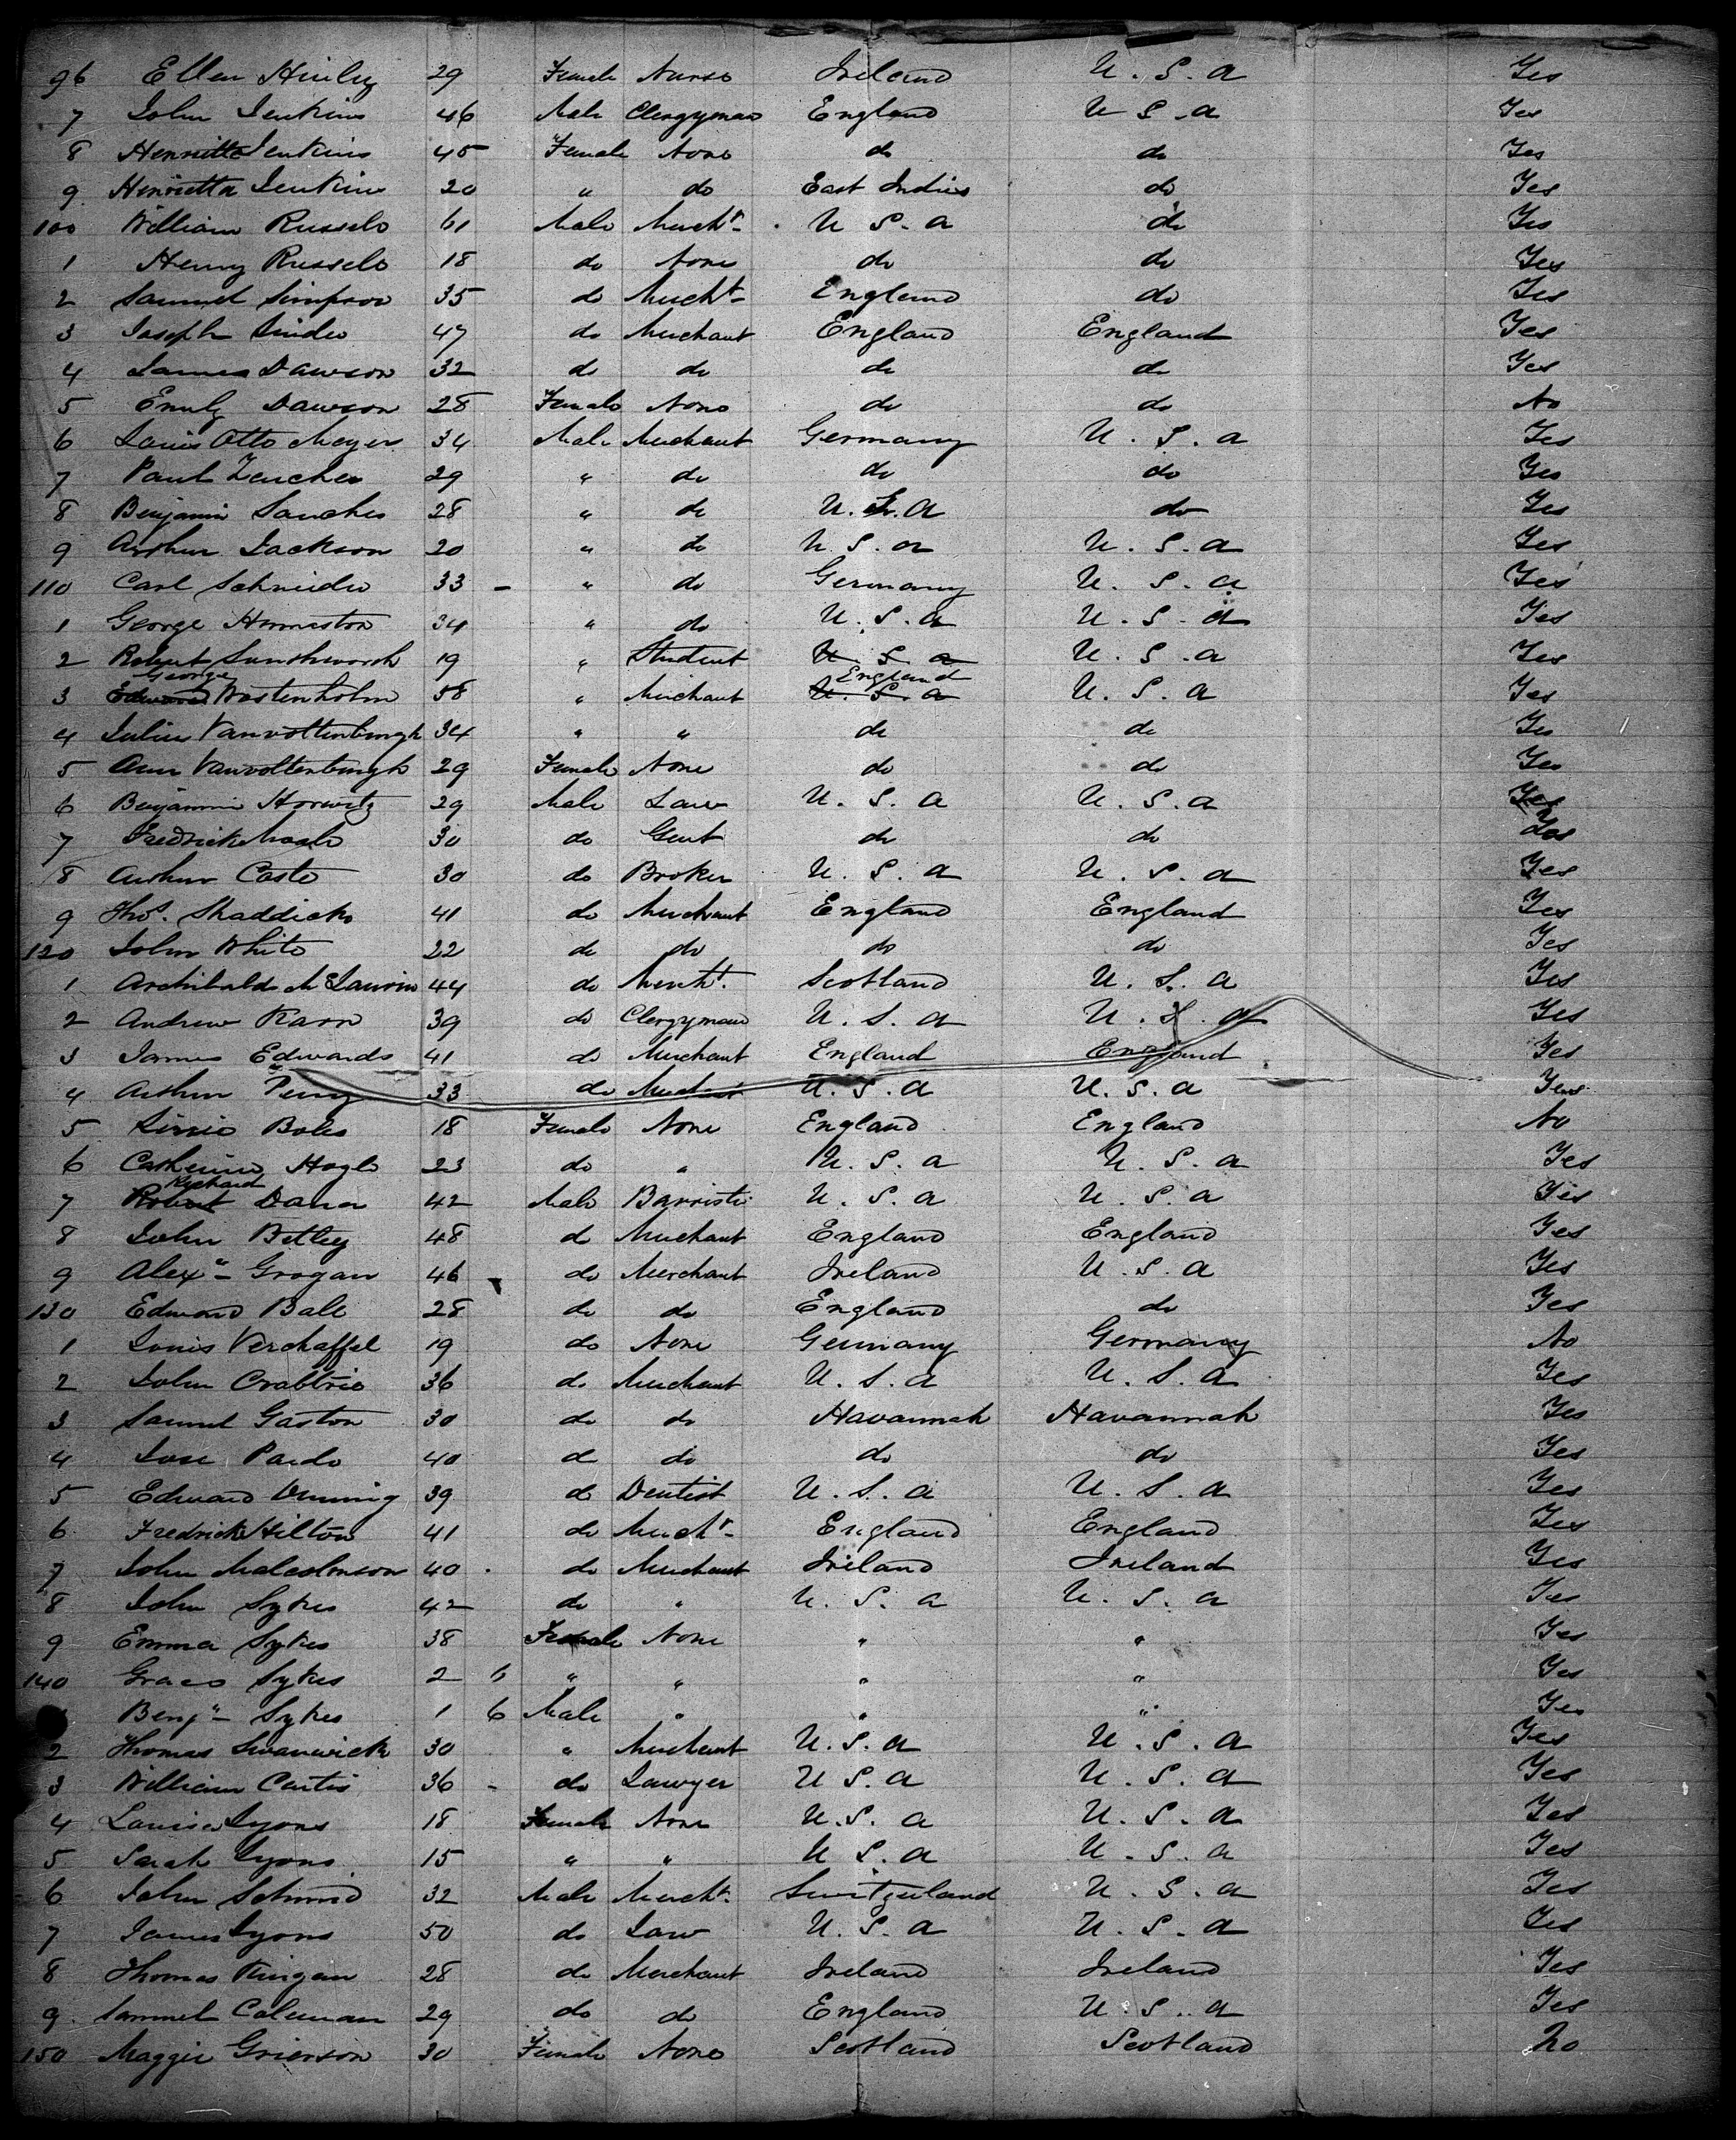 96 Ellen Hinley 29 Female Nurse Ireland U. S. A Yes
7 John Jenkins 46 Male Clergyman England U S. A Yes
8 Henrietta Jenkins 45 Female None do do Yes
9 Henrietta Jenkins 20 " do East Indies do Yes
100 William Russele 61 Male Mercht. U S. A do Yes
1 Henry Russele 18 do None do do Yes
2 Samuel Simpson 35 do Mercht. England do Yes
3 Joseph 47 do Merchant England England Yes
4 James Dawson 32 do do do do Yes
5 Emily Dawson 28 Female None do do No
6 Louis Otto Meyer 34 Male Merchant Germany U. S. A Yes
7 Paul 29 " do do do Yes
8 Benjamin Sanches 28 " do U. S. A do Yes
9 Arthur Jackson 20 " do U. S. A U. S. A Yes
110 Carl Schneider 33 - " do Germany U. S. A Yes
1 George Hermiston 34 " do U. S. A U. S. A Yes
2 Robert 19 " Student U. S. A U. S. A Yes
George England
3 Edward Wostenholm 58 " Merchant U. S. A U. S. A Yes
4 Julius Vanvoltenburgh 34 " " do do Yes
5 Ann Vanvoltenburgh 29 Female None do do Yes
6 Benjamin Horwitz 29 Male Law U. S. A U. S. A Yes
7 Fredrick 30 do Gent do do
8 Arthur Caste 30 do Broker U. S. A U. S. A Yes
9 Thos. Shaddick 41 do Merchant England England Yes
120 John White 22 do do do do Yes
1 Archibald McLaurin 44 do Mercht. Scotland U. S. A Yes
2 Andrew Karr 39 do Clergyman U. S. A U. S. A Yes
3 James Edwards 41 do Merchant England England Yes
4 Arthur Perry 33 do Merchant U. S. A U. S. A Yes
5 Lizzie Boles 18 Female None England England No
6 Catherine Hogle 23 do " U. S. A U. S. A Yes
Richard
7 Robert Dana 42 Male Barriste U. S. A U. S. A Yes
8 John Betley 48 do Merchant England England Yes
9 Alexr. Grogan 46 do Merchant Ireland U. S. A Yes
130 Edward Bale 28 do do England do Yes
1 Louis Verchaffel 19 do None Germany Germany No
2 John Crabtrie 36 do Merchant U. S. A U. S. A Yes
3 Samuel Gaston 30 do do Havannah Havannah Yes
4 Jose Pardo 40 do do do do Yes
5 Edward 39 do Dentist U. S. A U. S. A Yes
6 Fredrick Hilton 41 do Mercht. England England Yes
7 John Malcolmson 40 do Merchant Ireland Ireland Yes
8 John Sykes 42 do " U. S. A U. S. A Yes
9 Emma Sykes 38 Female None " " Yes
140 Grace Sykes 2 6 " " " " Yes
Benjn. Sykes 1 6 Male " " " Yes
2 Thomas Swanwick 30 " Merchant U. S. A U. S. A Yes
3 William Curtis 36 - do Lawyer U S. A U. S. A Yes
4 Louisa Lyons 18 Female None U. S. A U. S. A Yes
5 Sarah Lyons 15 " " U S. A U. S. A Yes
6 John Schmid 32 Male Mercht. Switzerland U. S. A Yes
7 James Lyons 50 do Law U. S. A U. S. A Yes
8 Thomas Kingan 28 do Merchant Ireland Ireland Yes
9 Samuel Coleman 29 do do England U. S. A Yes
150 Maggie Grierson 30 Female None Scotland Scotland No